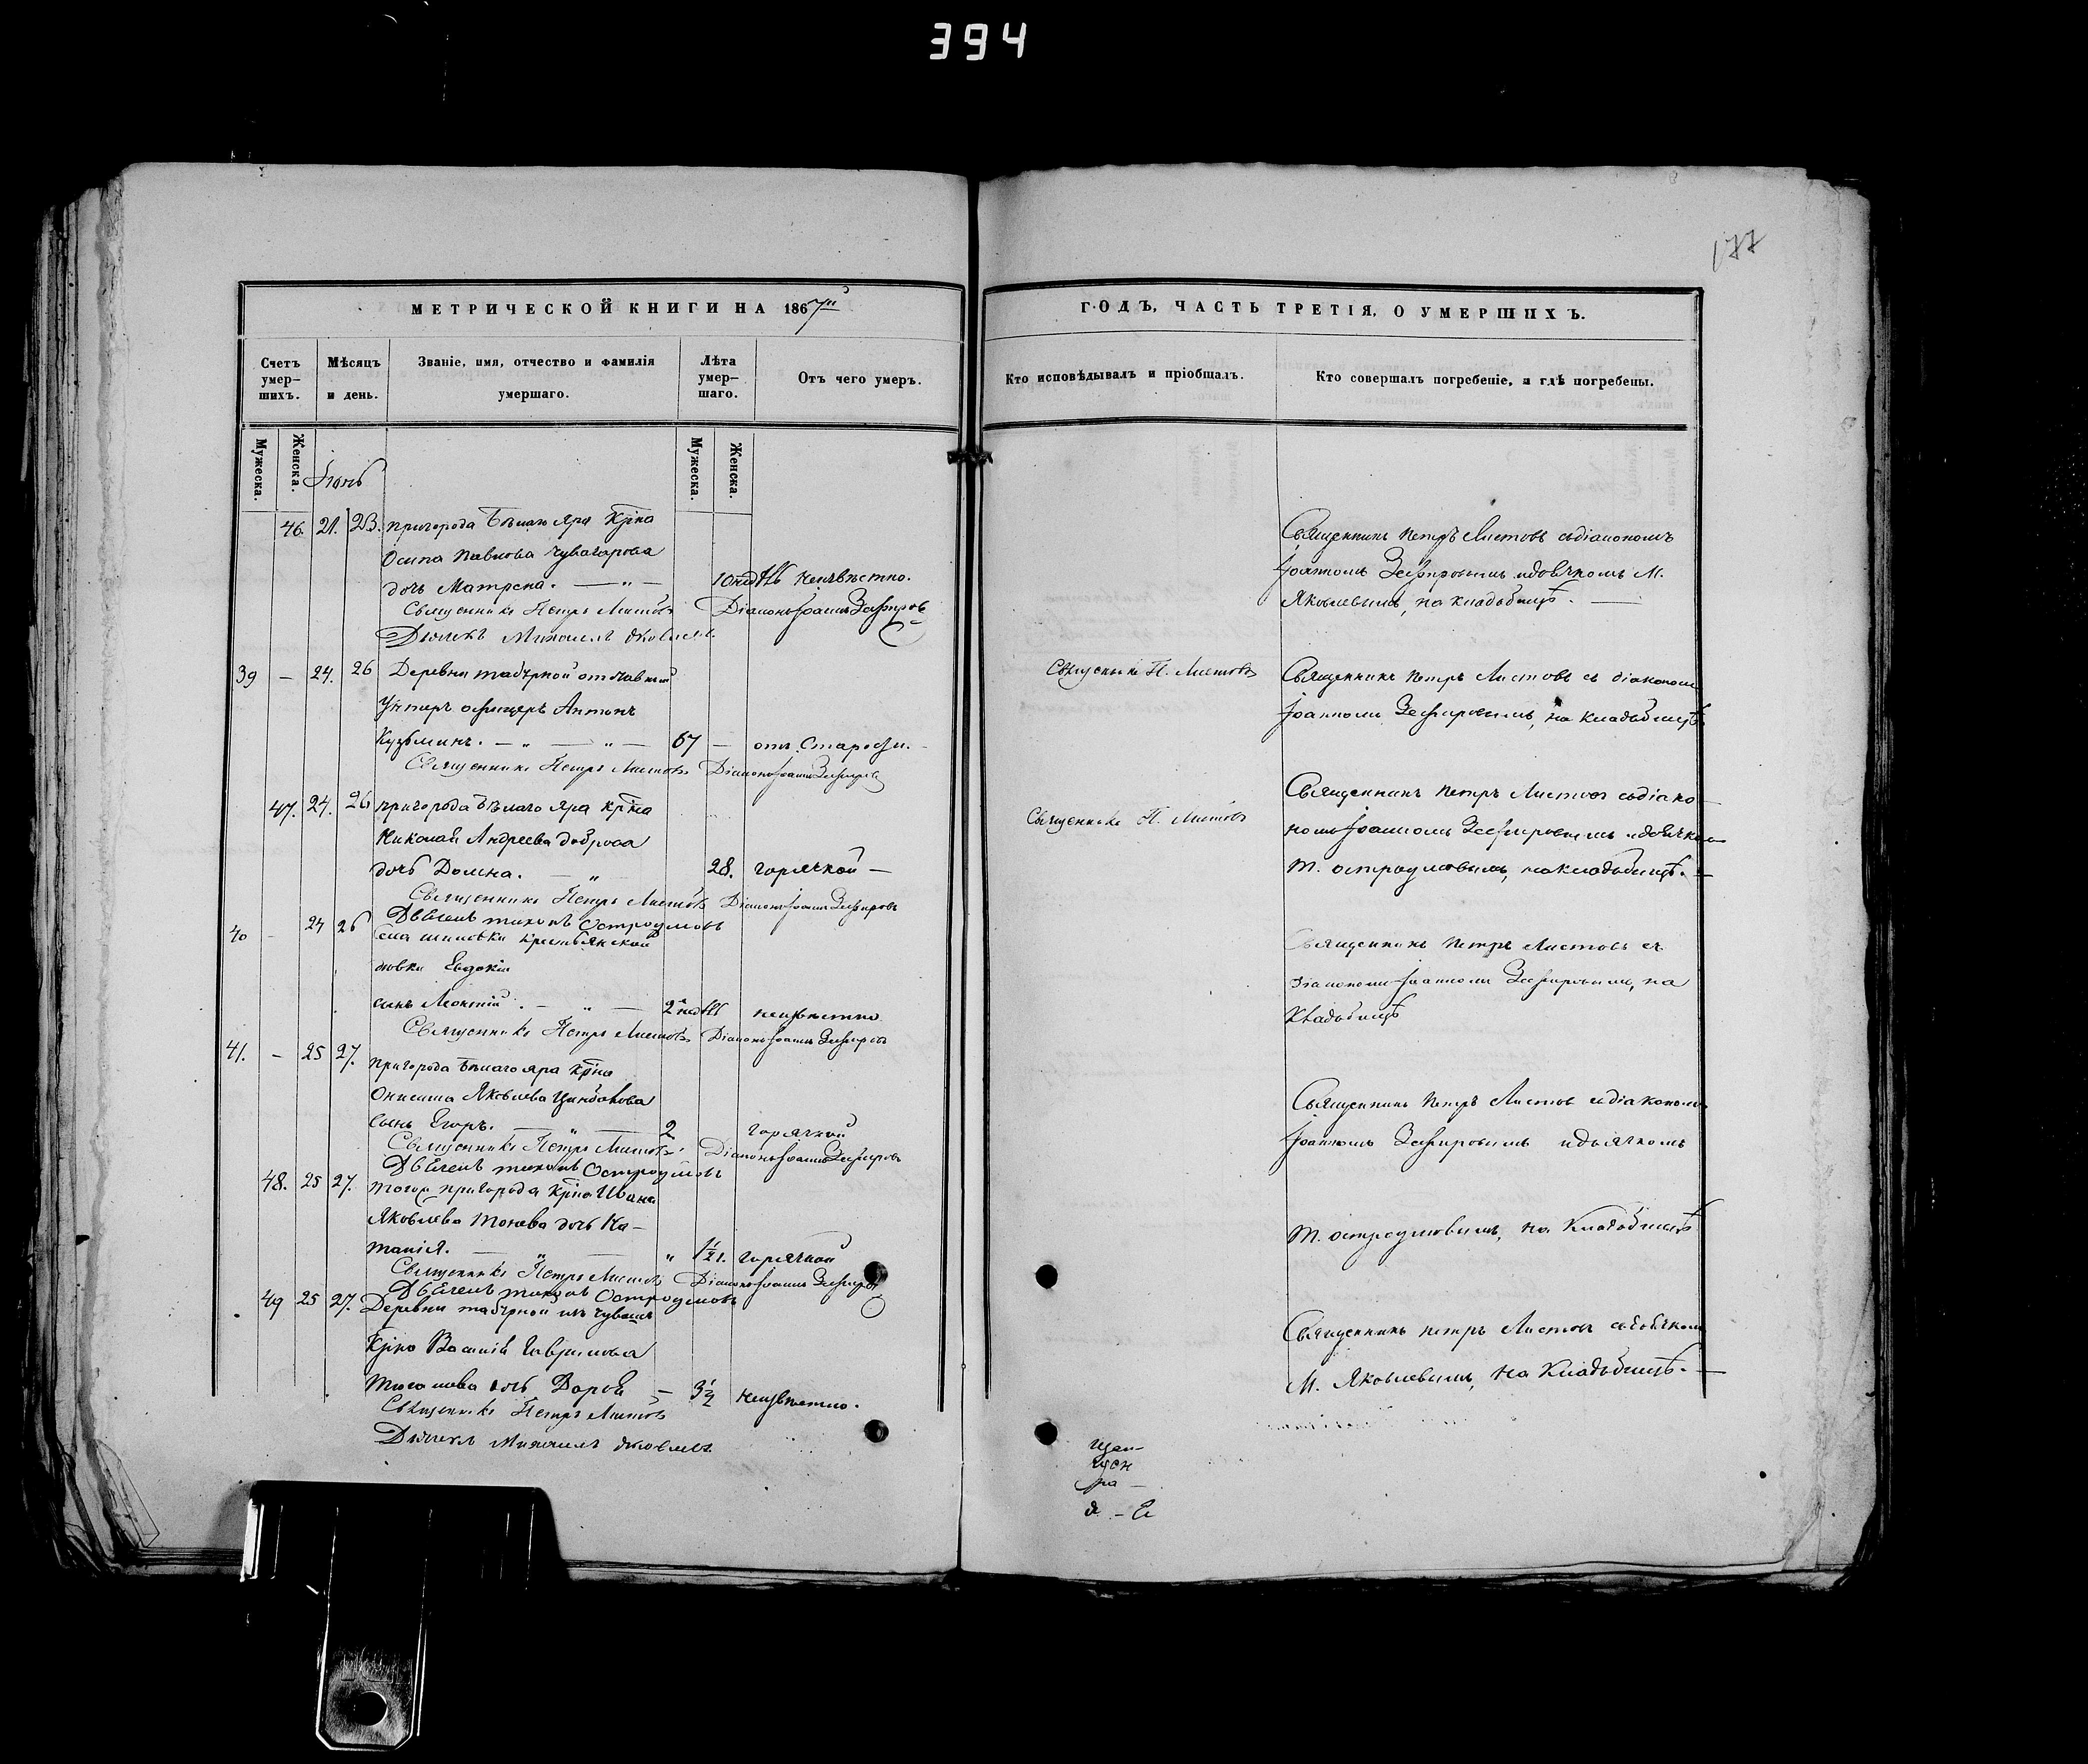 394
177
МЕТРИЧЕСКОЙ КНИГИ НА 1867й
ГОДЪ, ЧАСТЬ ТРЕТІЯ, О УМЕРШИХЪ.
Счетъ умер-шихъ.
Мѣсяцъ и день.
Званіе, имя, отчество и фамилія умершаго.
Лѣта умер-шаго.
Отъ чего умеръ.
Кто исповѣдывалъ и пріобщалъ.
Кто совершалъ погребеніе, и гдѣ погребены.
Мужеска.
Женска.
Мужеска.
Женска.
46. 21. 23. пригорода Бѣлаго Яра Крѣна
Осипа Павлова
дочь Матрена. — „ — 10 недѣль неизвѣстно.
Священникъ Петръ Листовъ Діаконъ Іоаннъ Зефировъ
Дьячекъ Михаилъ Яковлевъ
Священникъ Петръ Листовъ съ діакономъ
Іоанномъ Зефировымъ и дьячкомъ М.
Яковлевымъ, на кладбищѣ. —
39 — 24. 26 Деревни отставный
Унтеръ офицеръ Антонъ
Кузьминъ. — „ — „ — 67 — отъ старости.
Священникъ Петръ Листовъ Діаконъ Іоаннъ Зефировъ
Священникъ П. Листовъ
Священникъ Петръ Листовъ съ діакономъ
Іоанномъ Зефировымъ, на кладбищѣ
47. 24. 26 пригорода Бѣлаго Яра крѣна
Николая Андреева
дочь Домна. — „ 28. горячкой —
Священникъ Петръ Листовъ Діаконъ Іоаннъ Зефировъ
Дьячекъ Тихонъ Остроумовъ
Священникъ П. Листовъ
Священникъ Петръ Листовъ съ діако-
номъ Іоанномъ Зефировымъ и дьячкомъ
Т. Остроумовымъ, на кладбищѣ. —
40 — 24 26 Села крестьянской
Евдокіи
сынъ Леонтій. — „ — 2 недѣль неизвѣстно
Священникъ Петръ Листовъ Діаконъ Іоаннъ Зефировъ
Священникъ Петръ Листовъ съ
діакономъ Іоанномъ Зефировымъ, на
Кладбищѣ
41. — 25 27. пригорода Бѣлаго яра крѣна
Яковлева
сынъ Егоръ. — „ — 2 горячкой
Священникъ Петръ Листовъ Діаконъ Іоаннъ Зефировъ
Дьячекъ Тихонъ Остроумовъ
Священникъ Петръ Листовъ съ діакономъ
Іоанномъ Зефировымъ и дьячкомъ
48. 25 27. пригорода крѣна Ивана
Яковлева дочь На-
талія. — „ — „ 1½ горячкой
Священникъ Петръ Листовъ Діаконъ Іоаннъ Зефировъ
Дьячекъ Тихонъ Остроумовъ
Т. Остроумовымъ, на Кладбищѣ
49 25 27. Деревни изъ чувашъ
Крѣна Василія Гаврилова
дочь — 3½ неизвѣстно.
Священникъ Петръ Листовъ
Дьячекъ Михаилъ Яковлевъ
Священникъ Петръ Листовъ съ дьячкомъ
М. Яковлевымъ, на Кладбищѣ. —